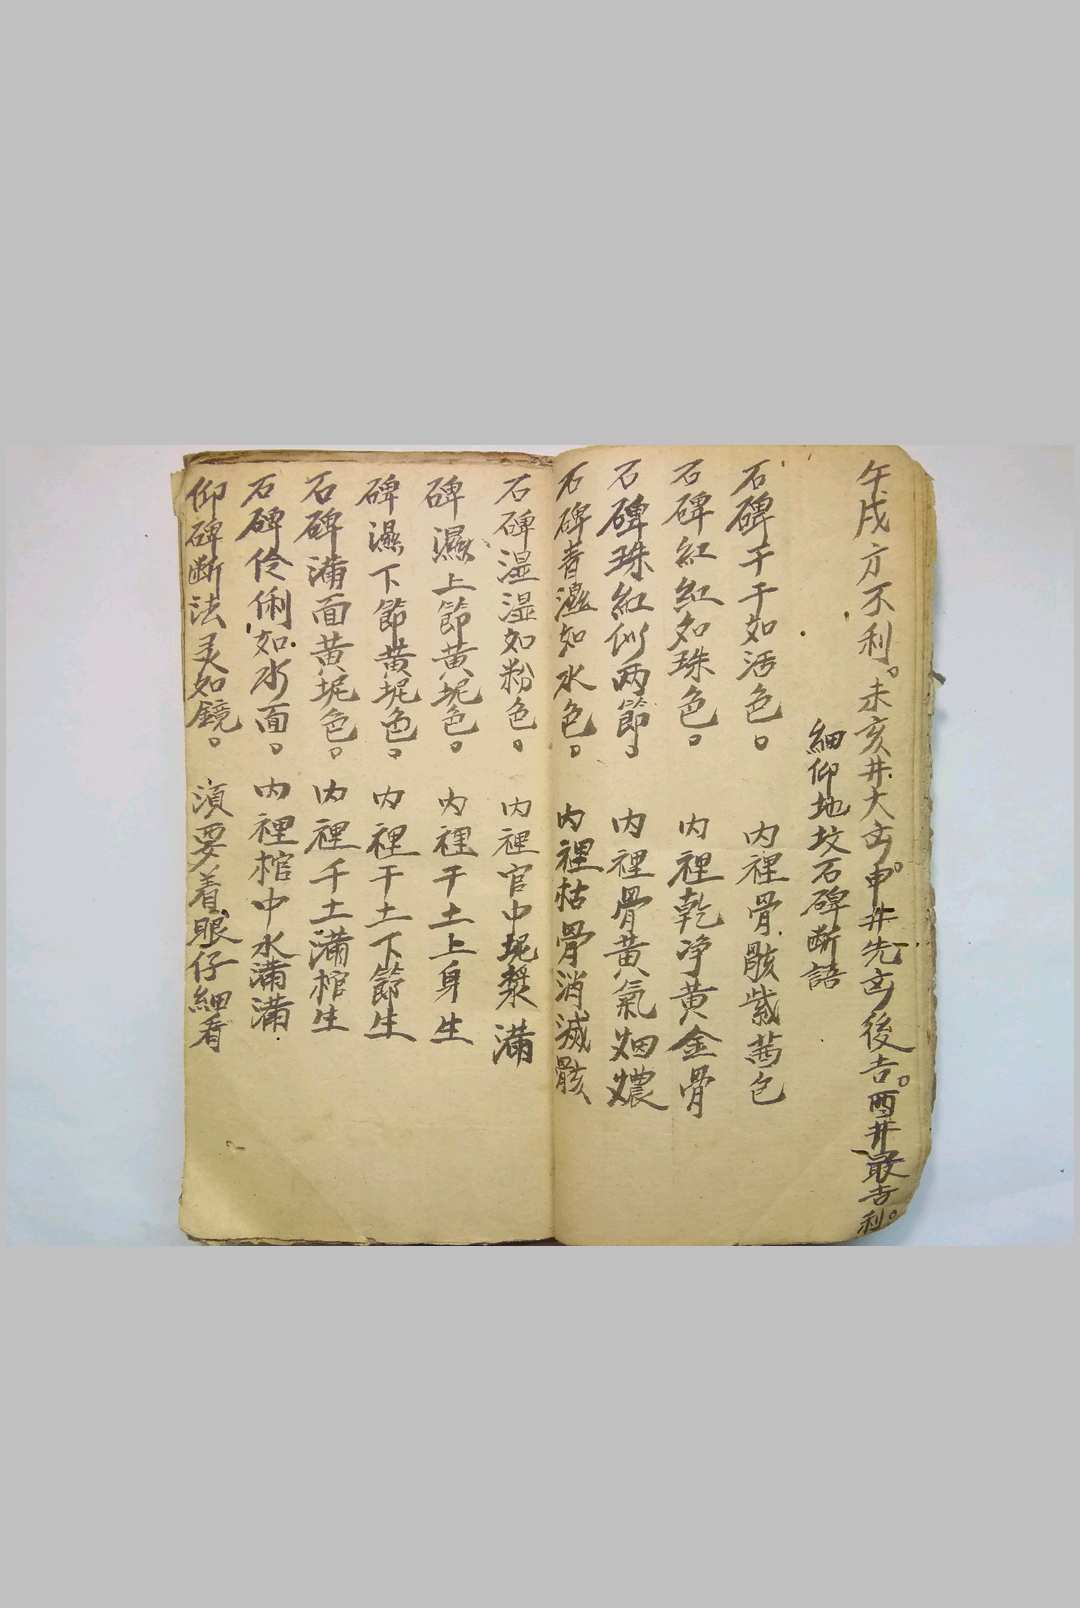 午戌方不利。未亥井大吉。申井先吉後吉。酉井最吉利。
細仰地坟石碑断語
石碑干干如活色。 内裡骨骸紫茜包
石碑紅紅名珠色。 内裡乾净黄金骨
石碑珠紅似两節。 内裡骨黄氣烟燶
石碑者濕如水色。 内裡枯骨消滅骸
石碑湿湿如粉色。 内裡官中坭漿满
碑濕上節黄坭色。 内裡干土上身生
碑濕下節黄坭色。 内裡干土下節生
石碑满面黄坭色。 内裡千土满棺生
石碑伶俐如水面。 内裡棺中水满满
仰碑断法灵如鏡。 湏要着眼仔細看